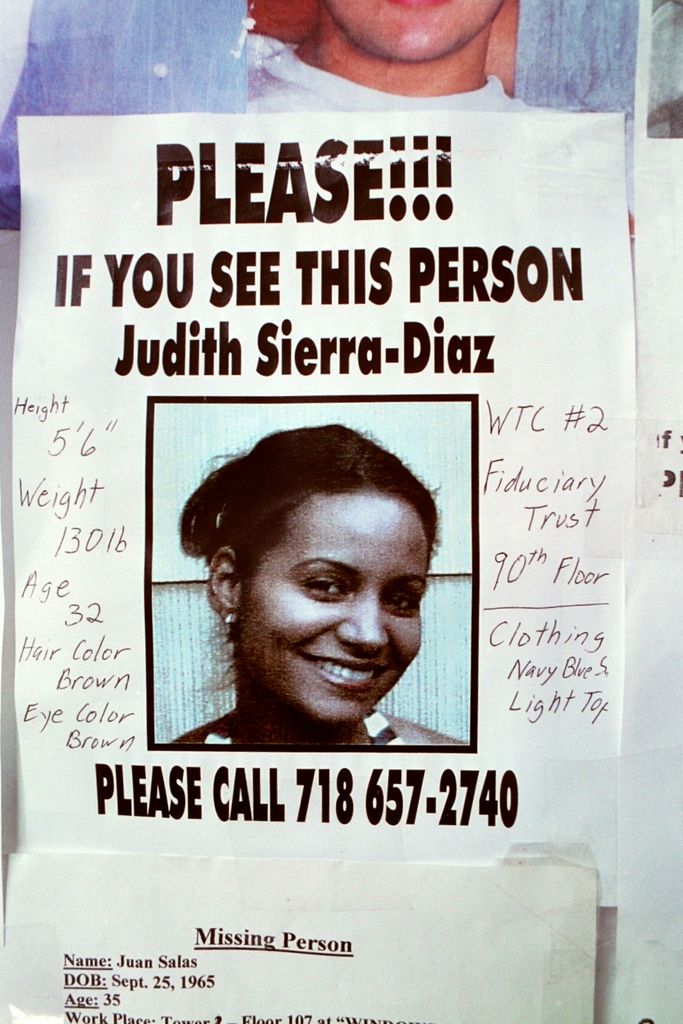 PLEASE!!!
IF YOU SEE THIS PERSON
Judith Sierra-Diaz
Height
5'6"
Weight
130lb
Age
32
Hair Color
Brown
Eye Color
Brown
WTC #2
Fiduciary
Trust
90th Floor
Clothing
Navy Blue
Light Top
PLEASE CALL 718 657-2740
Missing Person
Name: Juan Salas
DOB: Sept. 25, 1965
Age: 35
Work Place: Tower 2 – Floor 107 at